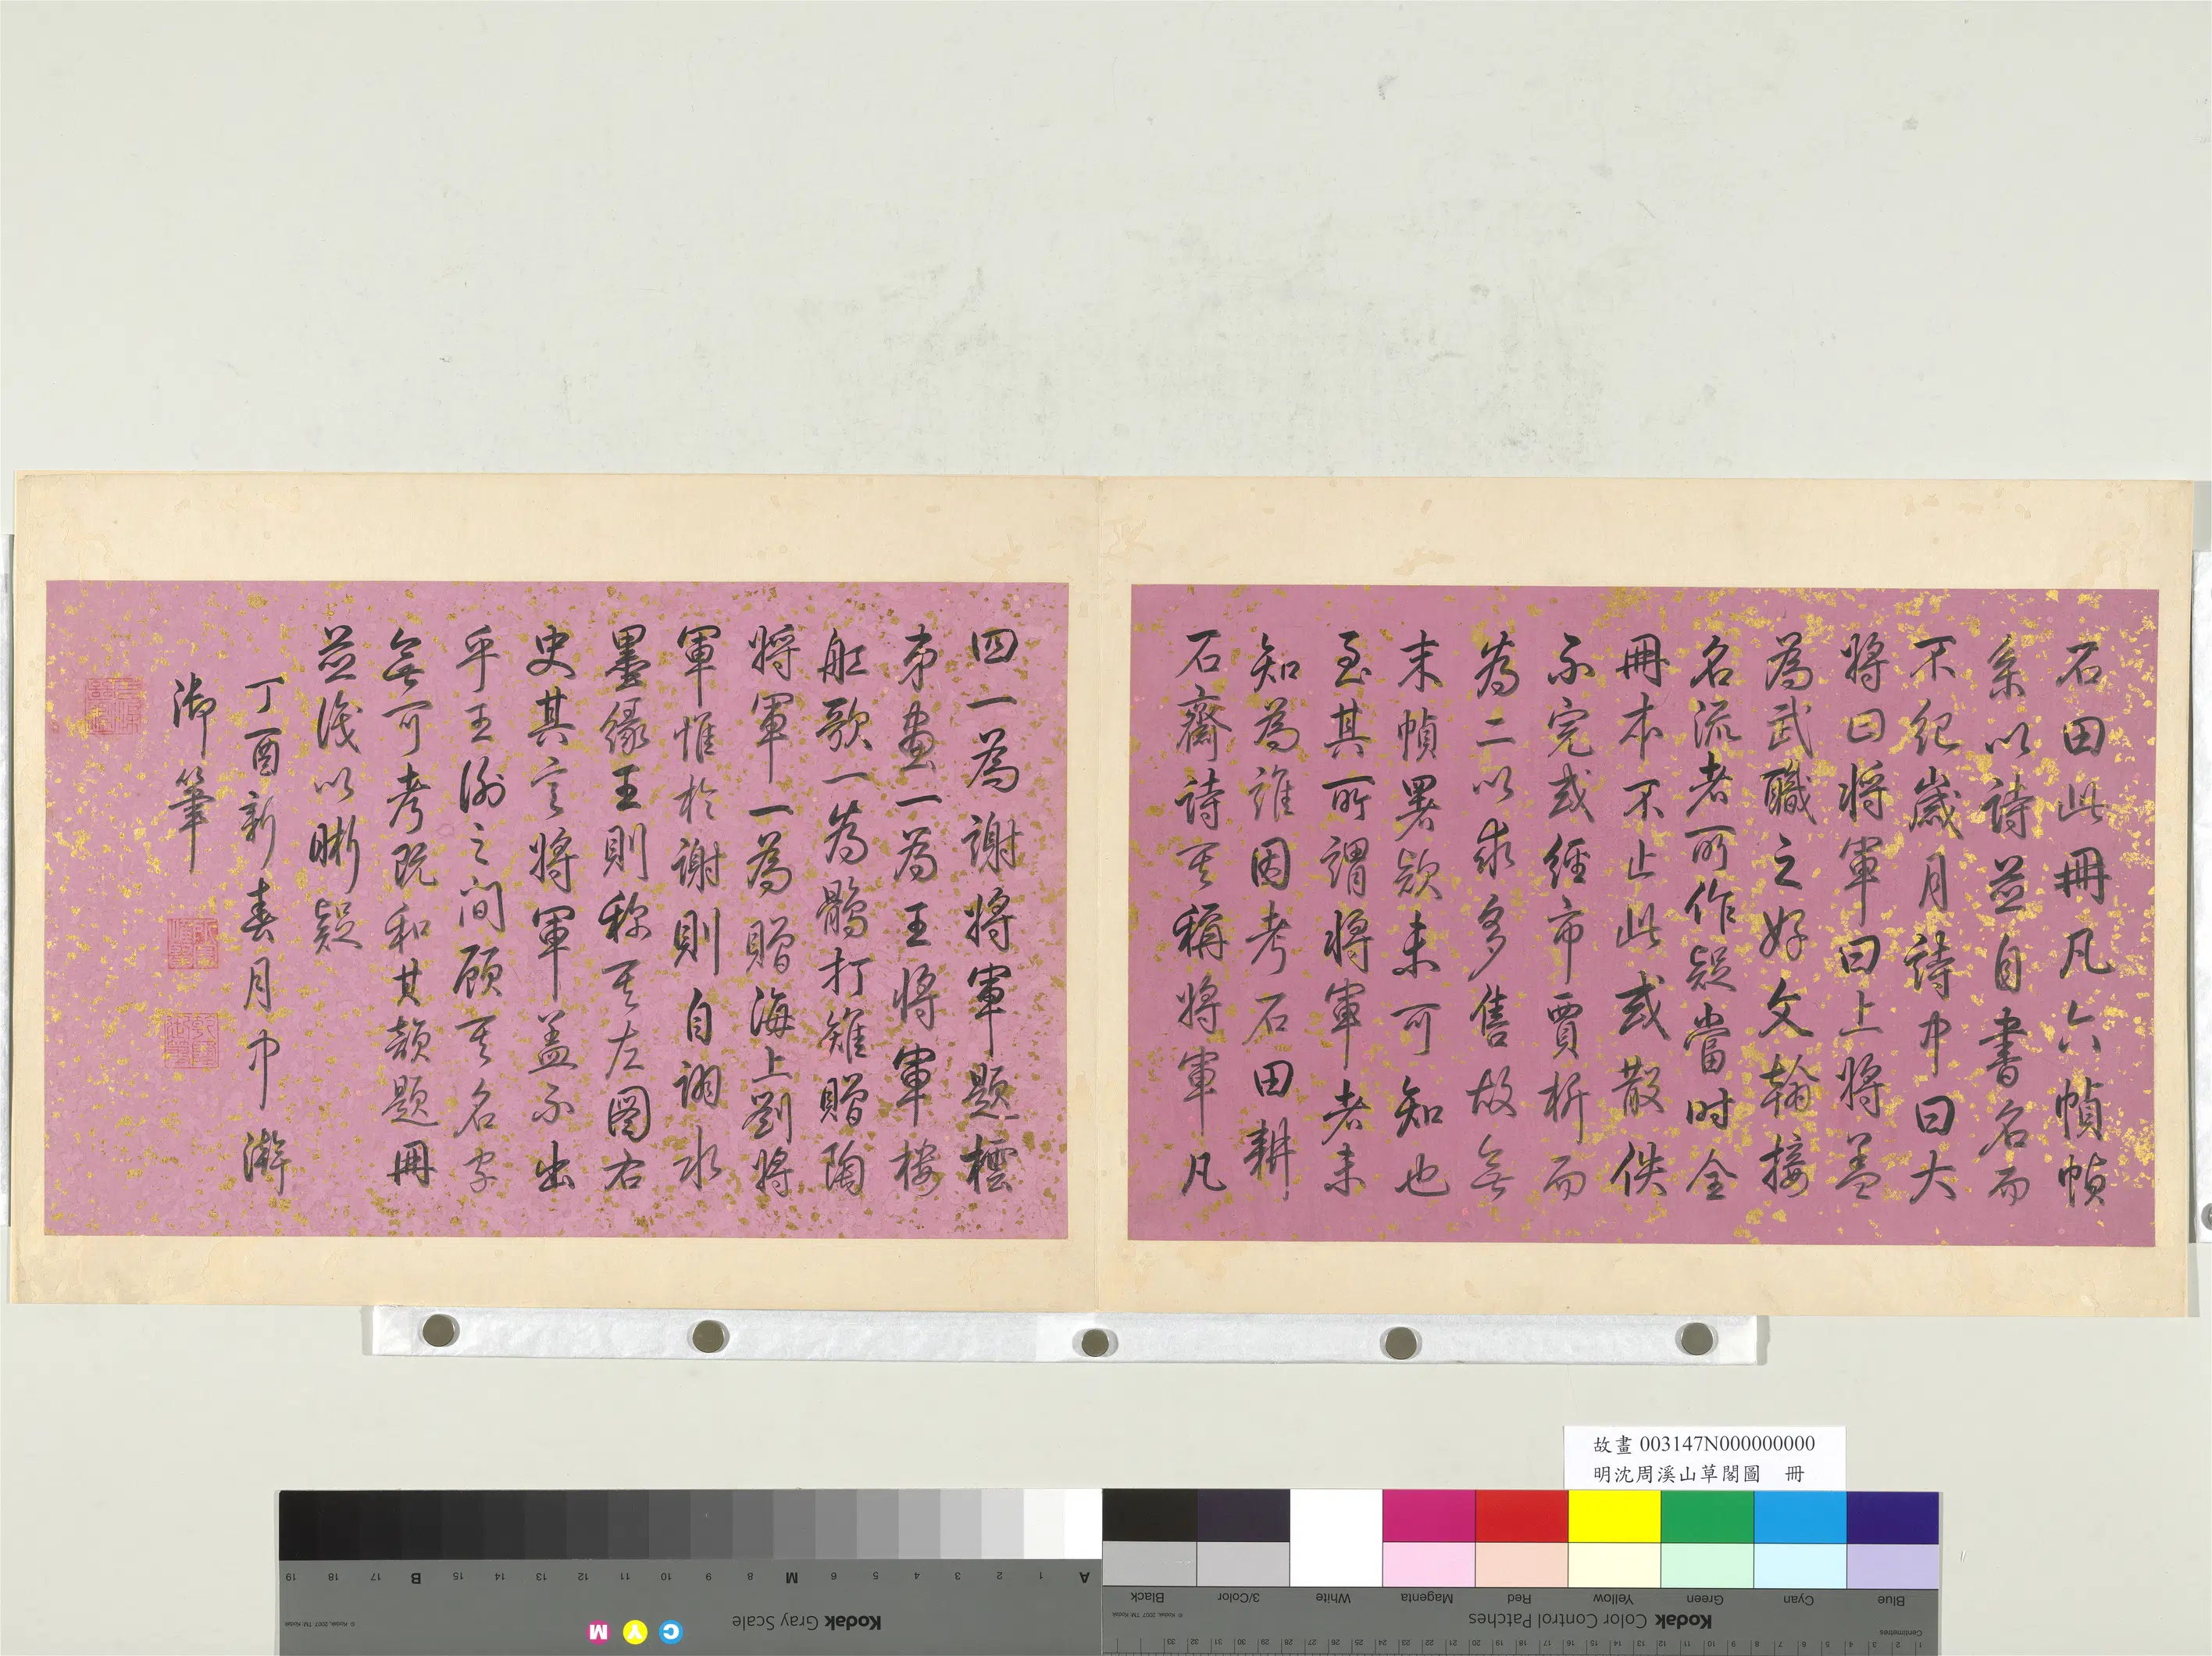 石田此冊凡六幀幀
系以詩並自書名而
不紀歲月詩中曰大
將曰將軍曰上將盖
為武職之好文翰接
名流者所作疑當時全
冊本不止此或散佚
不完或經市賈析而
為二以求多售故無
末幀署款未可知也
至其所謂將軍者未
知為誰因考石田耕
石齋詩其稱將軍凡
四一為謝將軍題檯
弟畫一為王將軍樓
舡歌一為鶻打雉贈陶
將軍一為贈海上劉將
軍惟於謝則自詡水
墨緣王則稱其左圖右
史其言將軍盖不出
乎王謝之間顧其名字
無可考既和其韻題冊
並識以晰疑
丁酉新春月中澣
御筆
故畫 003147N000000000
明沈周溪山草閣圖 冊
Kodak Gray Scale
A 1 2 3 4 5 6 M 8 9 10 11 12 13 14 15 B 17 18 19
C Y M
© Kodak, 2007 TM: Kodak
Kodak Color Control Patches
Blue Cyan Green Yellow Red Magenta White 3/Color Black
© Kodak, 2007 TM: Kodak
Centimetres